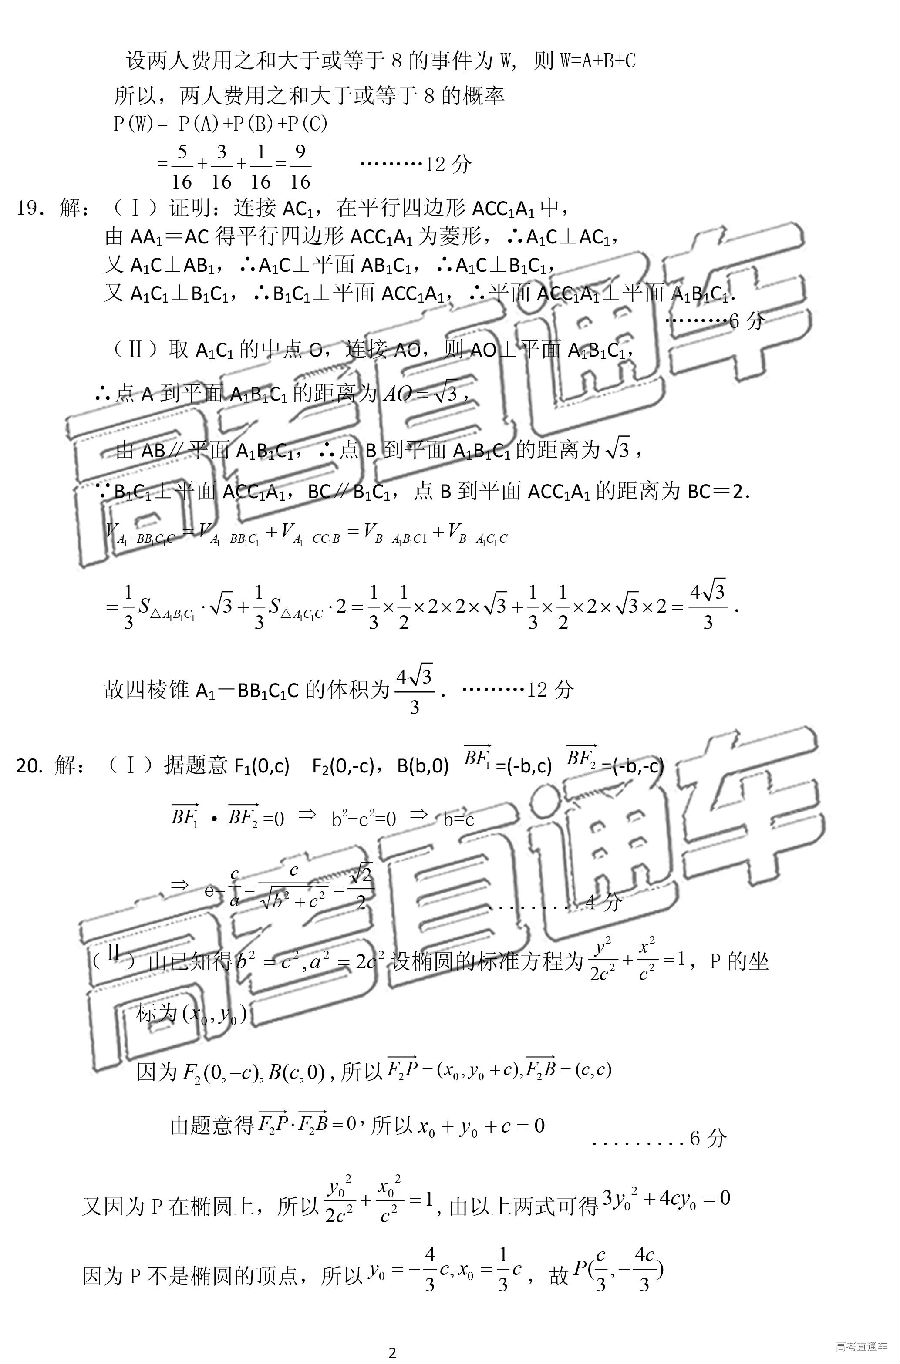 设两人费用之和大于或等于 8 的事件为 W, 则 W=A+B+C
所以，两人费用之和大于或等于 8 的概率
P(W)= P(A)+P(B)+P(C)
=5/16+3/16+1/16=9/16 ………12 分
19. 解：（Ⅰ）证明：连接 AC₁，在平行四边形 ACC₁A₁ 中，
由 AA₁＝AC 得平行四边形 ACC₁A₁ 为菱形，∴A₁C⊥AC₁，
又 A₁C⊥AB₁，∴A₁C⊥平面 AB₁C₁，∴A₁C⊥B₁C₁，
又 A₁C₁⊥B₁C₁，∴B₁C₁⊥平面 ACC₁A₁，∴平面 ACC₁A₁⊥平面 A₁B₁C₁.
………6 分
（Ⅱ）取 A₁C₁ 的中点 O，连接 AO，则 AO⊥平面 A₁B₁C₁，
∴点 A 到平面 A₁B₁C₁ 的距离为 AO=√3，
由 AB∥平面 A₁B₁C₁，∴点 B 到平面 A₁B₁C₁ 的距离为 √3，
∵B₁C₁⊥平面 ACC₁A₁，BC∥B₁C₁，点 B 到平面 ACC₁A₁ 的距离为 BC＝2.
V_{A₁-BB₁C₁C}=V_{A₁-BB₁C₁}+V_{A₁-CC₁B}=V_{B-A₁B₁C1}+V_{B-A₁C₁C}
=1/3 S_{△A₁B₁C₁}·√3+1/3 S_{△A₁C₁C}·2=1/3×1/2×2×2×√3+1/3×1/2×2×√3×2=4√3/3.
故四棱锥 A₁－BB₁C₁C 的体积为 4√3/3. ………12 分
20. 解：（Ⅰ）据题意 F₁(0,c) F₂(0,-c)，B(b,0) \overrightarrow{BF₁}=(-b,c) \overrightarrow{BF₂}=(-b,-c)
\overrightarrow{BF₁}•\overrightarrow{BF₂}=0 ⇒ b²-c²=0 ⇒ b=c
⇒ e=c/a=c/√(b²+c²)=√2/2 .........4 分
（Ⅱ）由已知得 b²=c²,a²=2c² 设椭圆的标准方程为 y²/2c²+x²/c²=1，P 的坐
标为 (x₀,y₀)
因为 F₂(0,-c),B(c,0)，所以 \overrightarrow{F₂P}=(x₀,y₀+c),\overrightarrow{F₂B}=(c,c)
由题意得 \overrightarrow{F₂P}·\overrightarrow{F₂B}=0，所以 x₀+y₀+c=0 .........6 分
又因为 P 在椭圆上，所以 y₀²/2c²+x₀²/c²=1，由以上两式可得 3y₀²+4cy₀=0
因为 P 不是椭圆的顶点，所以 y₀=-4/3c,x₀=1/3c，故 P(c/3,-4c/3)
2
高考直通车
高考直通车
高考直通车